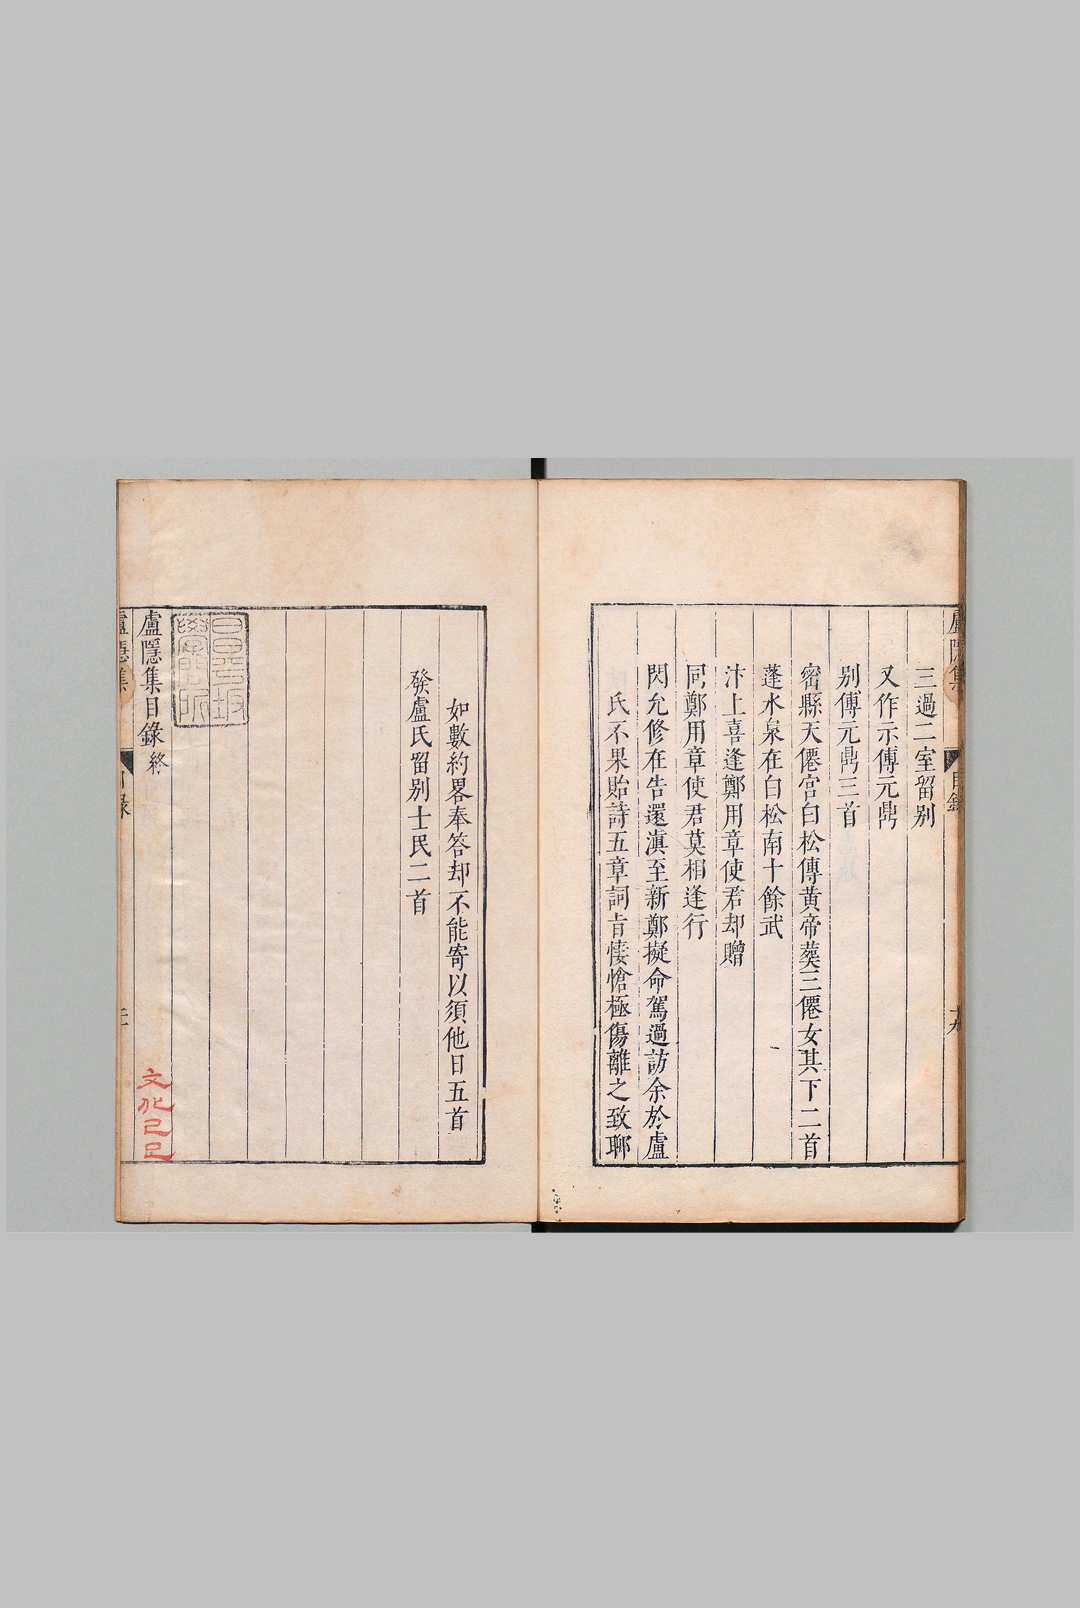 盧隱集
目錄
十九
三過二室留别
又作示傅元鼎
别傅元鼎三首
密縣天僊宮白松傳黃帝葬三僊女其下二首
蓬水泉在白松南十餘武
汴上喜逢鄭用章使君却贈
同鄭用章使君莫相逢行
閃允修在告還滇至新鄭擬命駕過訪余於盧
氏不果貽詩五章詞旨悽愴極傷離之致聊
如數約畧奉答却不能寄以須他日五首
發盧氏留别士民二首
昌平坂
學問所
盧隱集目錄終
文化己巳
盧隱集
目錄